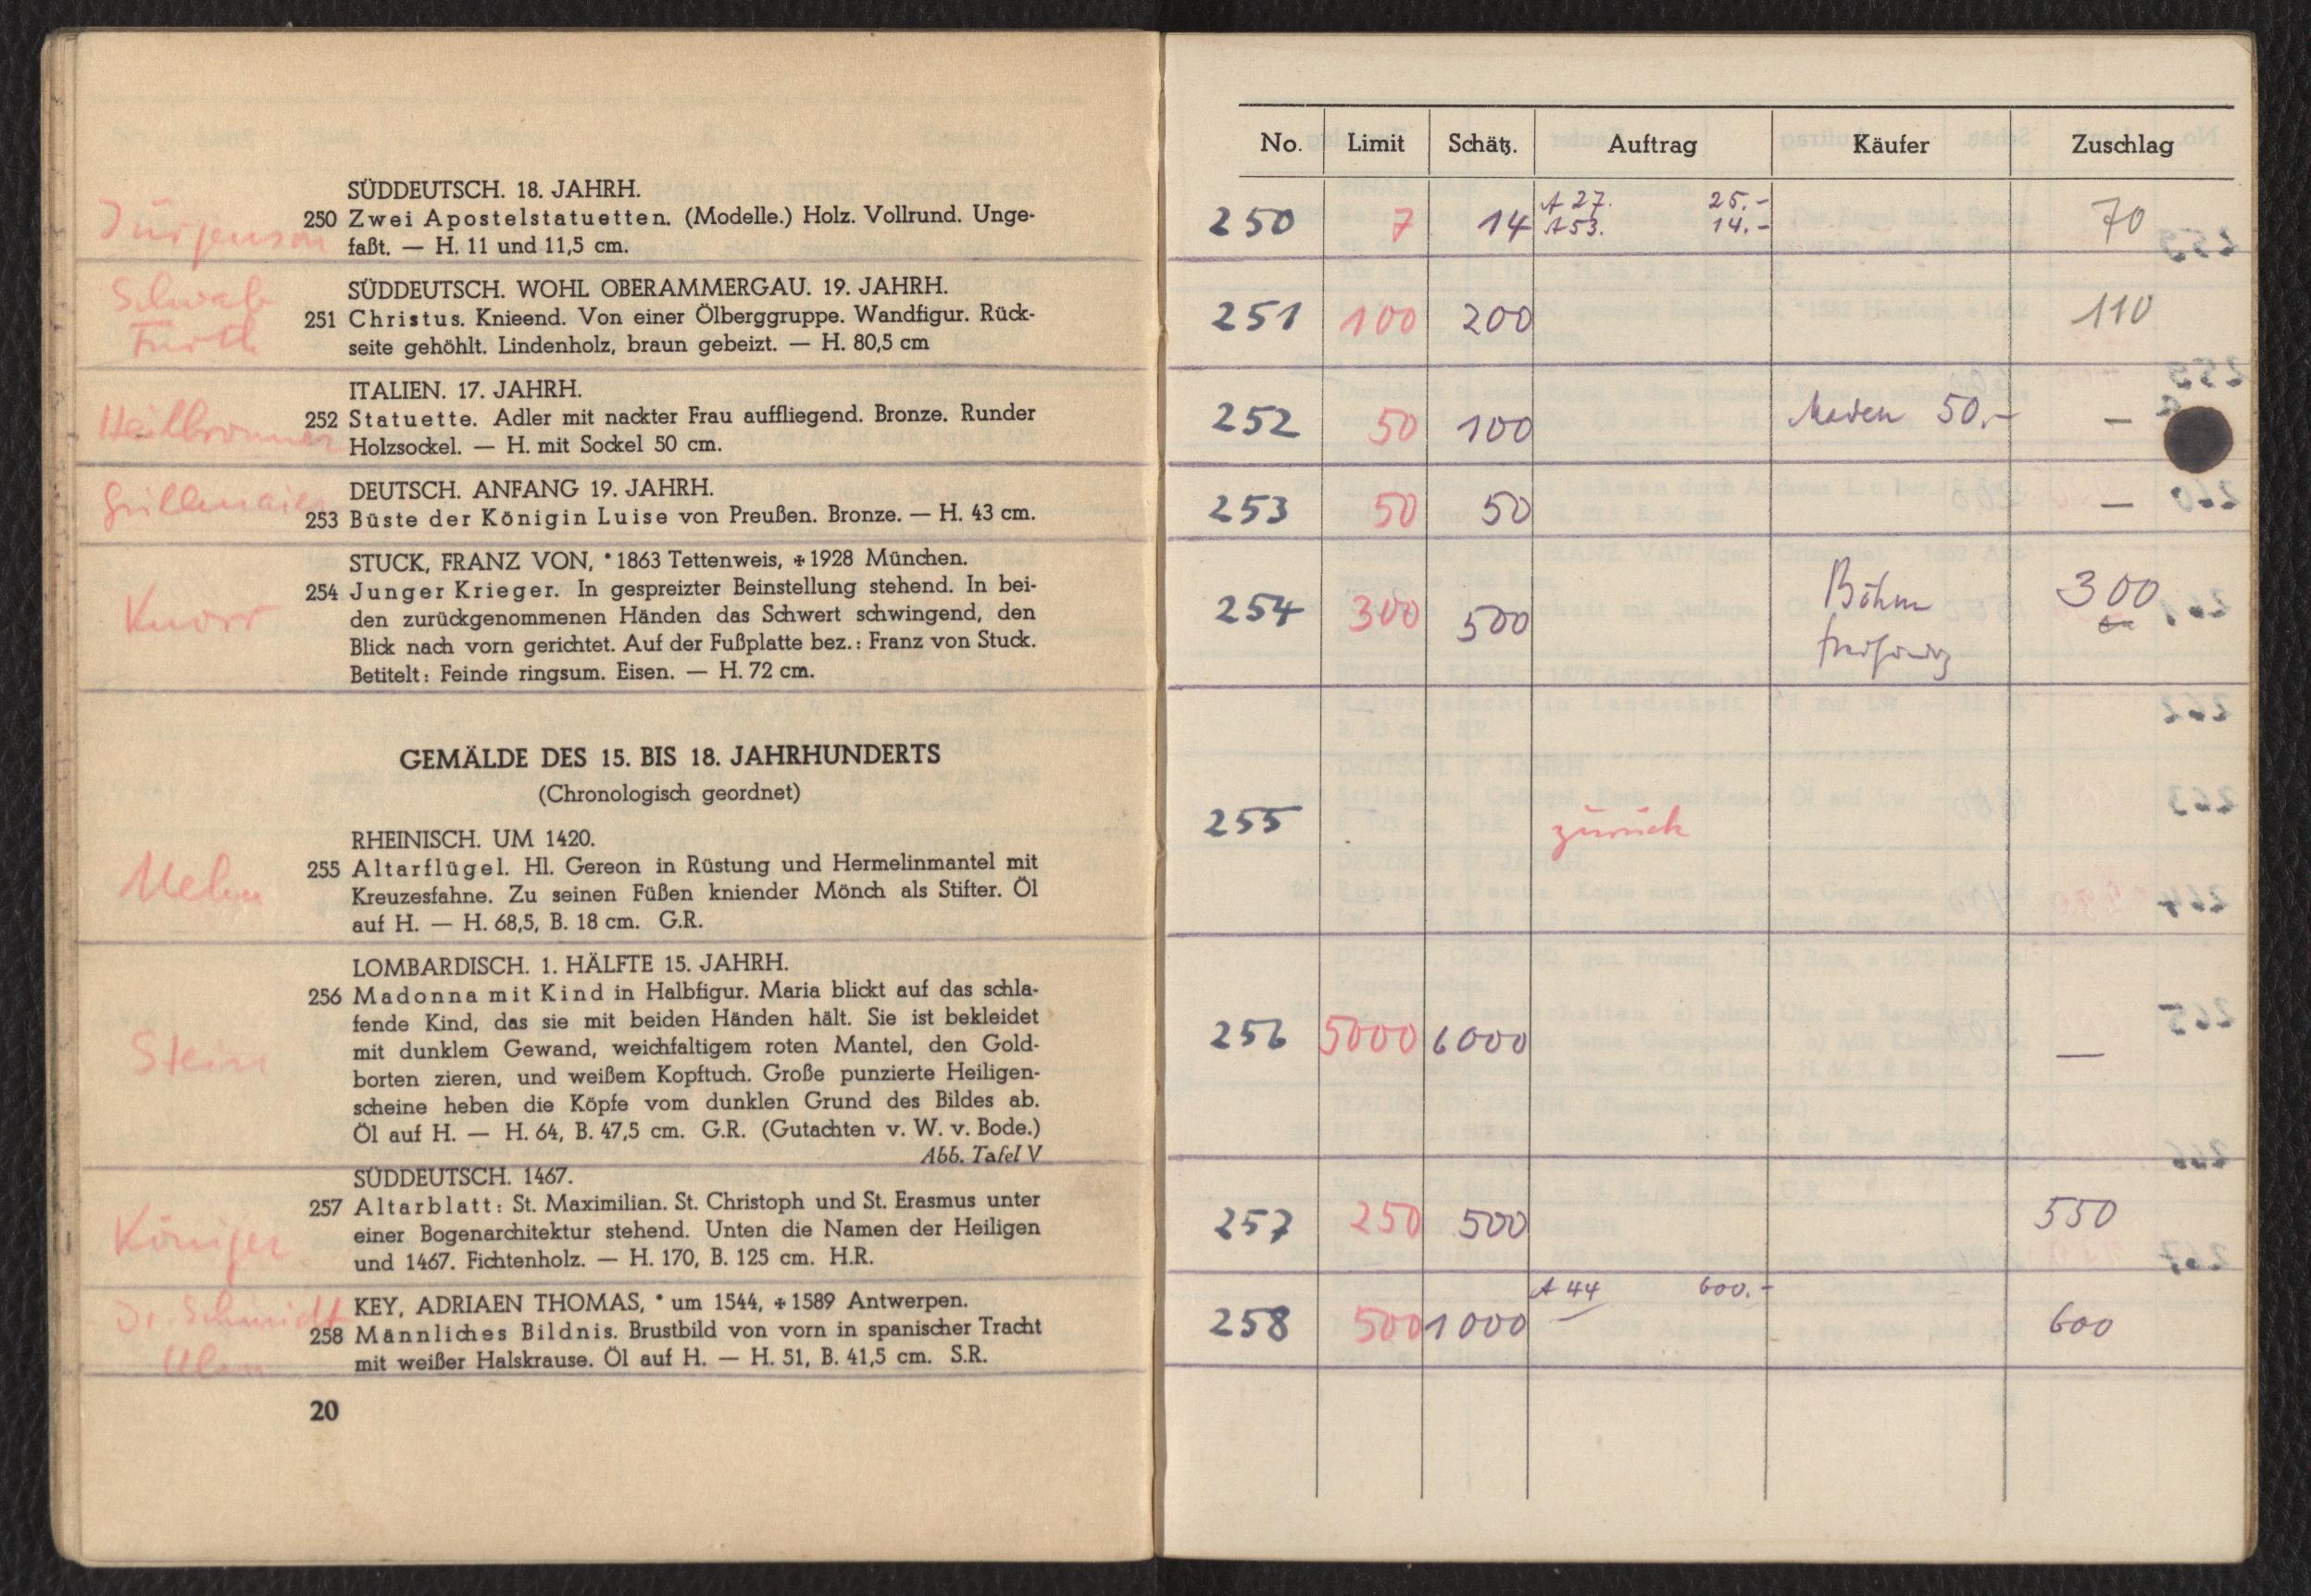 SÜDDEUTSCH. 18. JAHRH.
Jürgenson
250 Zwei Apostelstatuetten. (Modelle.) Holz. Vollrund. Unge-
faßt. — H. 11 und 11,5 cm.
Schwab
Fürth
SÜDDEUTSCH. WOHL OBERAMMERGAU. 19. JAHRH.
251 Christus. Knieend. Von einer Ölberggruppe. Wandfigur. Rück-
seite gehöhlt. Lindenholz, braun gebeizt. — H. 80,5 cm
ITALIEN. 17. JAHRH.
Heilbronner
252 Statuette. Adler mit nackter Frau auffliegend. Bronze. Runder
Holzsockel. — H. mit Sockel 50 cm.
Grillmaier
DEUTSCH. ANFANG 19. JAHRH.
253 Büste der Königin Luise von Preußen. Bronze. — H. 43 cm.
STUCK, FRANZ VON, * 1863 Tettenweis, ✠ 1928 München.
Knorr
254 Junger Krieger. In gespreizter Beinstellung stehend. In bei-
den zurückgenommenen Händen das Schwert schwingend, den
Blick nach vorn gerichtet. Auf der Fußplatte bez.: Franz von Stuck.
Betitelt: Feinde ringsum. Eisen. — H. 72 cm.
GEMÄLDE DES 15. BIS 18. JAHRHUNDERTS
(Chronologisch geordnet)
RHEINISCH. UM 1420.
255 Altarflügel. Hl. Gereon in Rüstung und Hermelinmantel mit
Kreuzesfahne. Zu seinen Füßen kniender Mönch als Stifter. Öl
auf H. — H. 68,5, B. 18 cm. G.R.
LOMBARDISCH. 1. HÄLFTE 15. JAHRH.
Stein
256 Madonna mit Kind in Halbfigur. Maria blickt auf das schla-
fende Kind, das sie mit beiden Händen hält. Sie ist bekleidet
mit dunklem Gewand, weichfaltigem roten Mantel, den Gold-
borten zieren, und weißem Kopftuch. Große punzierte Heiligen-
scheine heben die Köpfe vom dunklen Grund des Bildes ab.
Öl auf H. — H. 64, B. 47,5 cm. G.R. (Gutachten v. W. v. Bode.)
Abb. Tafel V
SÜDDEUTSCH. 1467.
Königer
257 Altarblatt: St. Maximilian. St. Christoph und St. Erasmus unter
einer Bogenarchitektur stehend. Unten die Namen der Heiligen
und 1467. Fichtenholz. — H. 170, B. 125 cm. H.R.
Dr Schmidt
Ulm
KEY, ADRIAEN THOMAS, * um 1544, ✠ 1589 Antwerpen.
258 Männliches Bildnis. Brustbild von vorn in spanischer Tracht
mit weißer Halskrause. Öl auf H. — H. 51, B. 41,5 cm. S.R.
20
No. Limit Schätz. Auftrag Käufer Zuschlag
250 7 14 A 27. 25.- 70
A 53. 14.-
251 100 200 110
252 50 100 50.- —
253 50 50 —
254 300 500 Böhm 300
255 zurück
256 5000 6000 —
257 250 500 550
A 44 600.-
258 500 1000 600